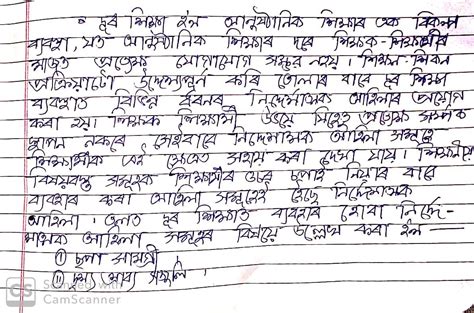 • দূৰ শিক্ষা হ'ল আনুষ্ঠানিক শিক্ষাৰ এক বিকল্প
ব্যৱস্থা, য'ত আনুষ্ঠানিক শিক্ষাৰ দৰে শিক্ষক-শিক্ষাৰ্থীৰ
মাজত প্ৰত্যক্ষ যোগাযোগ সম্ভৱ নহয়। শিক্ষণ-শিকন
প্ৰক্ৰিয়াটো উদ্দেশ্যপূৰ্ণ কৰি তোলাৰ বাবে দূৰ শিক্ষা
ব্যৱস্থাত বিভিন্ন ধৰণৰ নিৰ্দেশাত্মক আহিলাৰ প্ৰয়োগ
কৰা হয়। শিক্ষক শিক্ষাৰ্থী উভয়ে প্ৰত্যক্ষ সম্পৰ্ক
স্থাপন নকৰে সেইবাবে নিৰ্দেশাত্মক আহিলা সমূহে
শিক্ষাৰ্থীক এই ক্ষেত্ৰত সহায় কৰা দেখা যায়।
বিষয়বস্তু সমূহক শিক্ষাৰ্থীৰ ওচৰ চপাই নিয়াৰ বাবে
ব্যৱহাৰ কৰা আহিলা সমূহেই হৈছে নিৰ্দেশাত্মক
আহিলা। তলত দূৰ শিক্ষাত ব্যৱহাৰ হোৱা নিৰ্দে-
শাত্মক আহিলা সমূহৰ বিষয়ে উল্লেখ কৰা হ'ল—
① ছপা সামগ্ৰী
② দৃশ্য শ্ৰাব্য সঁজুলি।
CS Scanned with
CamScanner